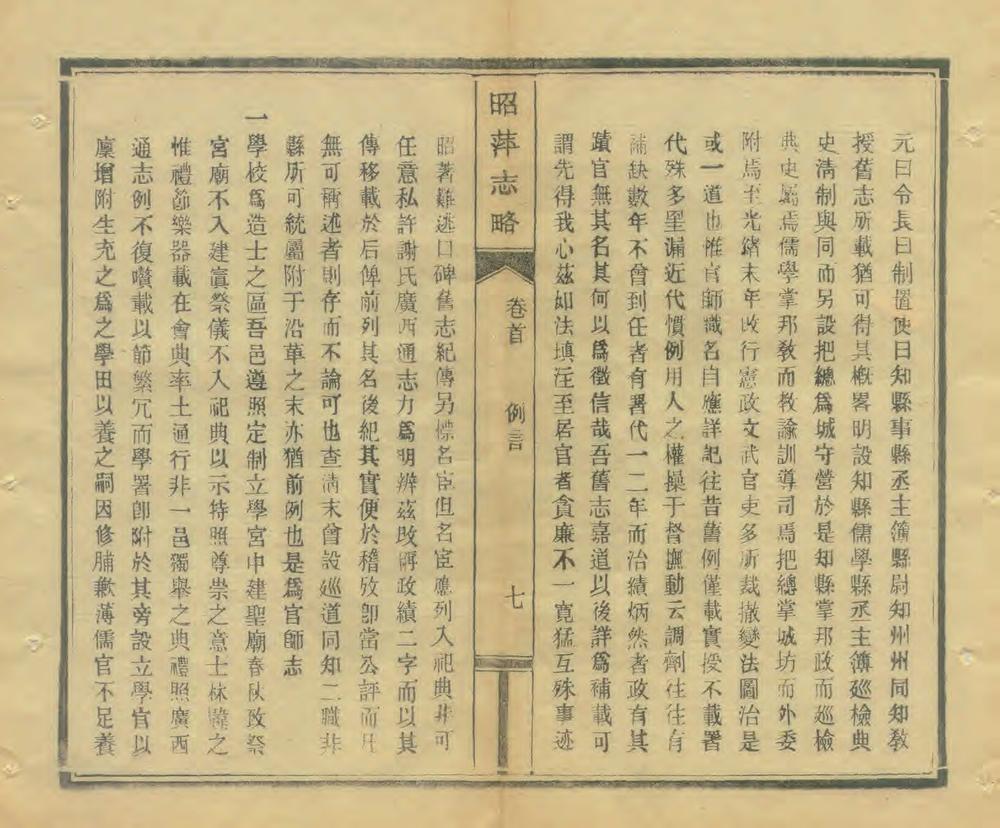 元曰令長曰制置使曰知縣事縣丞主簿縣尉知州州同知敎
授舊志所載猶可得其槪畧明設知縣儒學縣丞主簿廵檢典
史淸制與同而另設把總爲城守營於是知縣掌邦政而廵檢
典史屬焉儒學掌邦敎而敎諭訓導司焉把總掌城坊而外委
附焉至光緖末年改行憲政文武官吏多所裁撤變法圖治是
或一道也惟官師職名自應詳記往昔舊例僅載實授不載署
代殊多罣漏近代慣例用人之權操于督撫動云調劑往往有
補缺數年不曾到任者有署代一二年而治績炳然者政有其
蹟官無其名其何以爲徵信哉吾舊志嘉道以後詳爲補載可
謂先得我心茲如法塡注至居官者貪廉不一寬猛互殊事迹
昭萍志略
卷首
例言
七
昭著難逃口碑舊志紀傳另標名宦但名宦應列入祀典非可
任意私許謝氏廣西通志力爲明辨茲改稱政績二字而以其
傳移載於后俾前列其名後紀其實便於稽攷卽當公評而凡
無可稱述者則存而不論可也查淸末曾設廵道同知二職非
縣所可統屬附于沿革之末亦猶前例也是爲官師志
一學校爲造士之區吾邑遵照定制立學宮中建聖廟春秋致祭
宮廟不入建寘祭儀不入祀典以示特照尊崇之意士林韙之
惟禮節樂器載在會典率土通行非一邑獨舉之典禮照廣西
通志例不復囋載以節繁冗而學署卽附於其旁設立學官以
廩增附生充之爲之學田以養之嗣因修脯歉薄儒官不足養